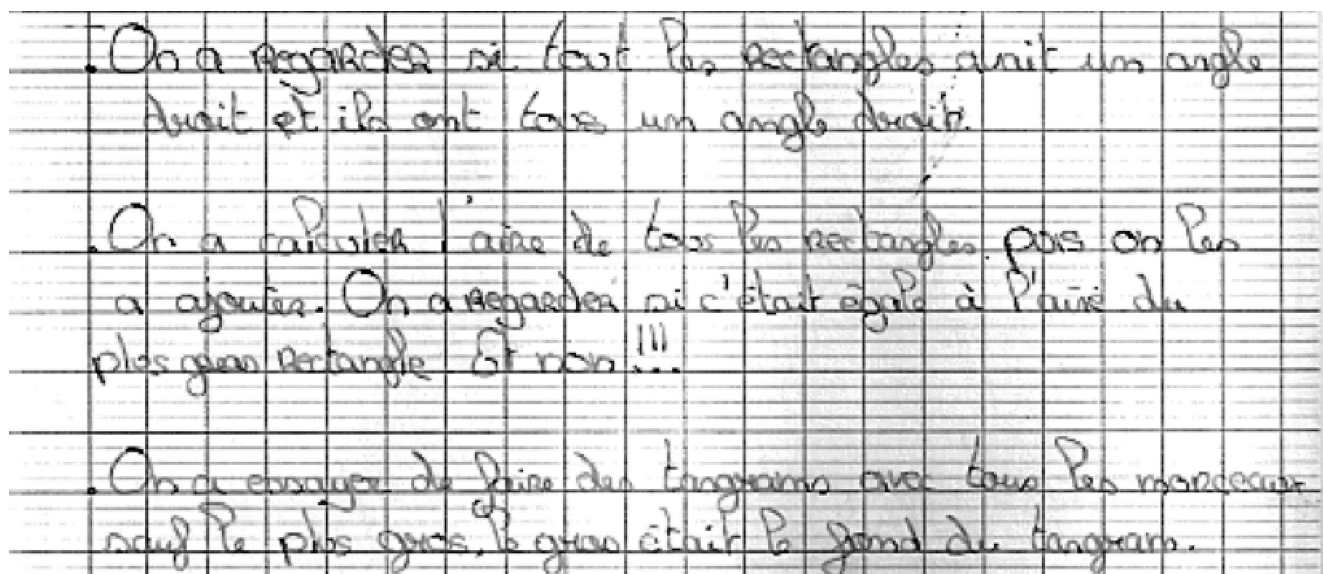 . On a regarder si tout les rectangles avait un angle
droit et ils ont tous un angle droit.
. On a calculer l'aire de tous les rectangles puis on les
a ajouter. On a regarder si c'était égale à l'aire du
plus gros rectangle Et non !!!
. On a essayer de faire des tangrams avec tous les morceaux
sauf le plus gros, le gros était le fond du tangram.